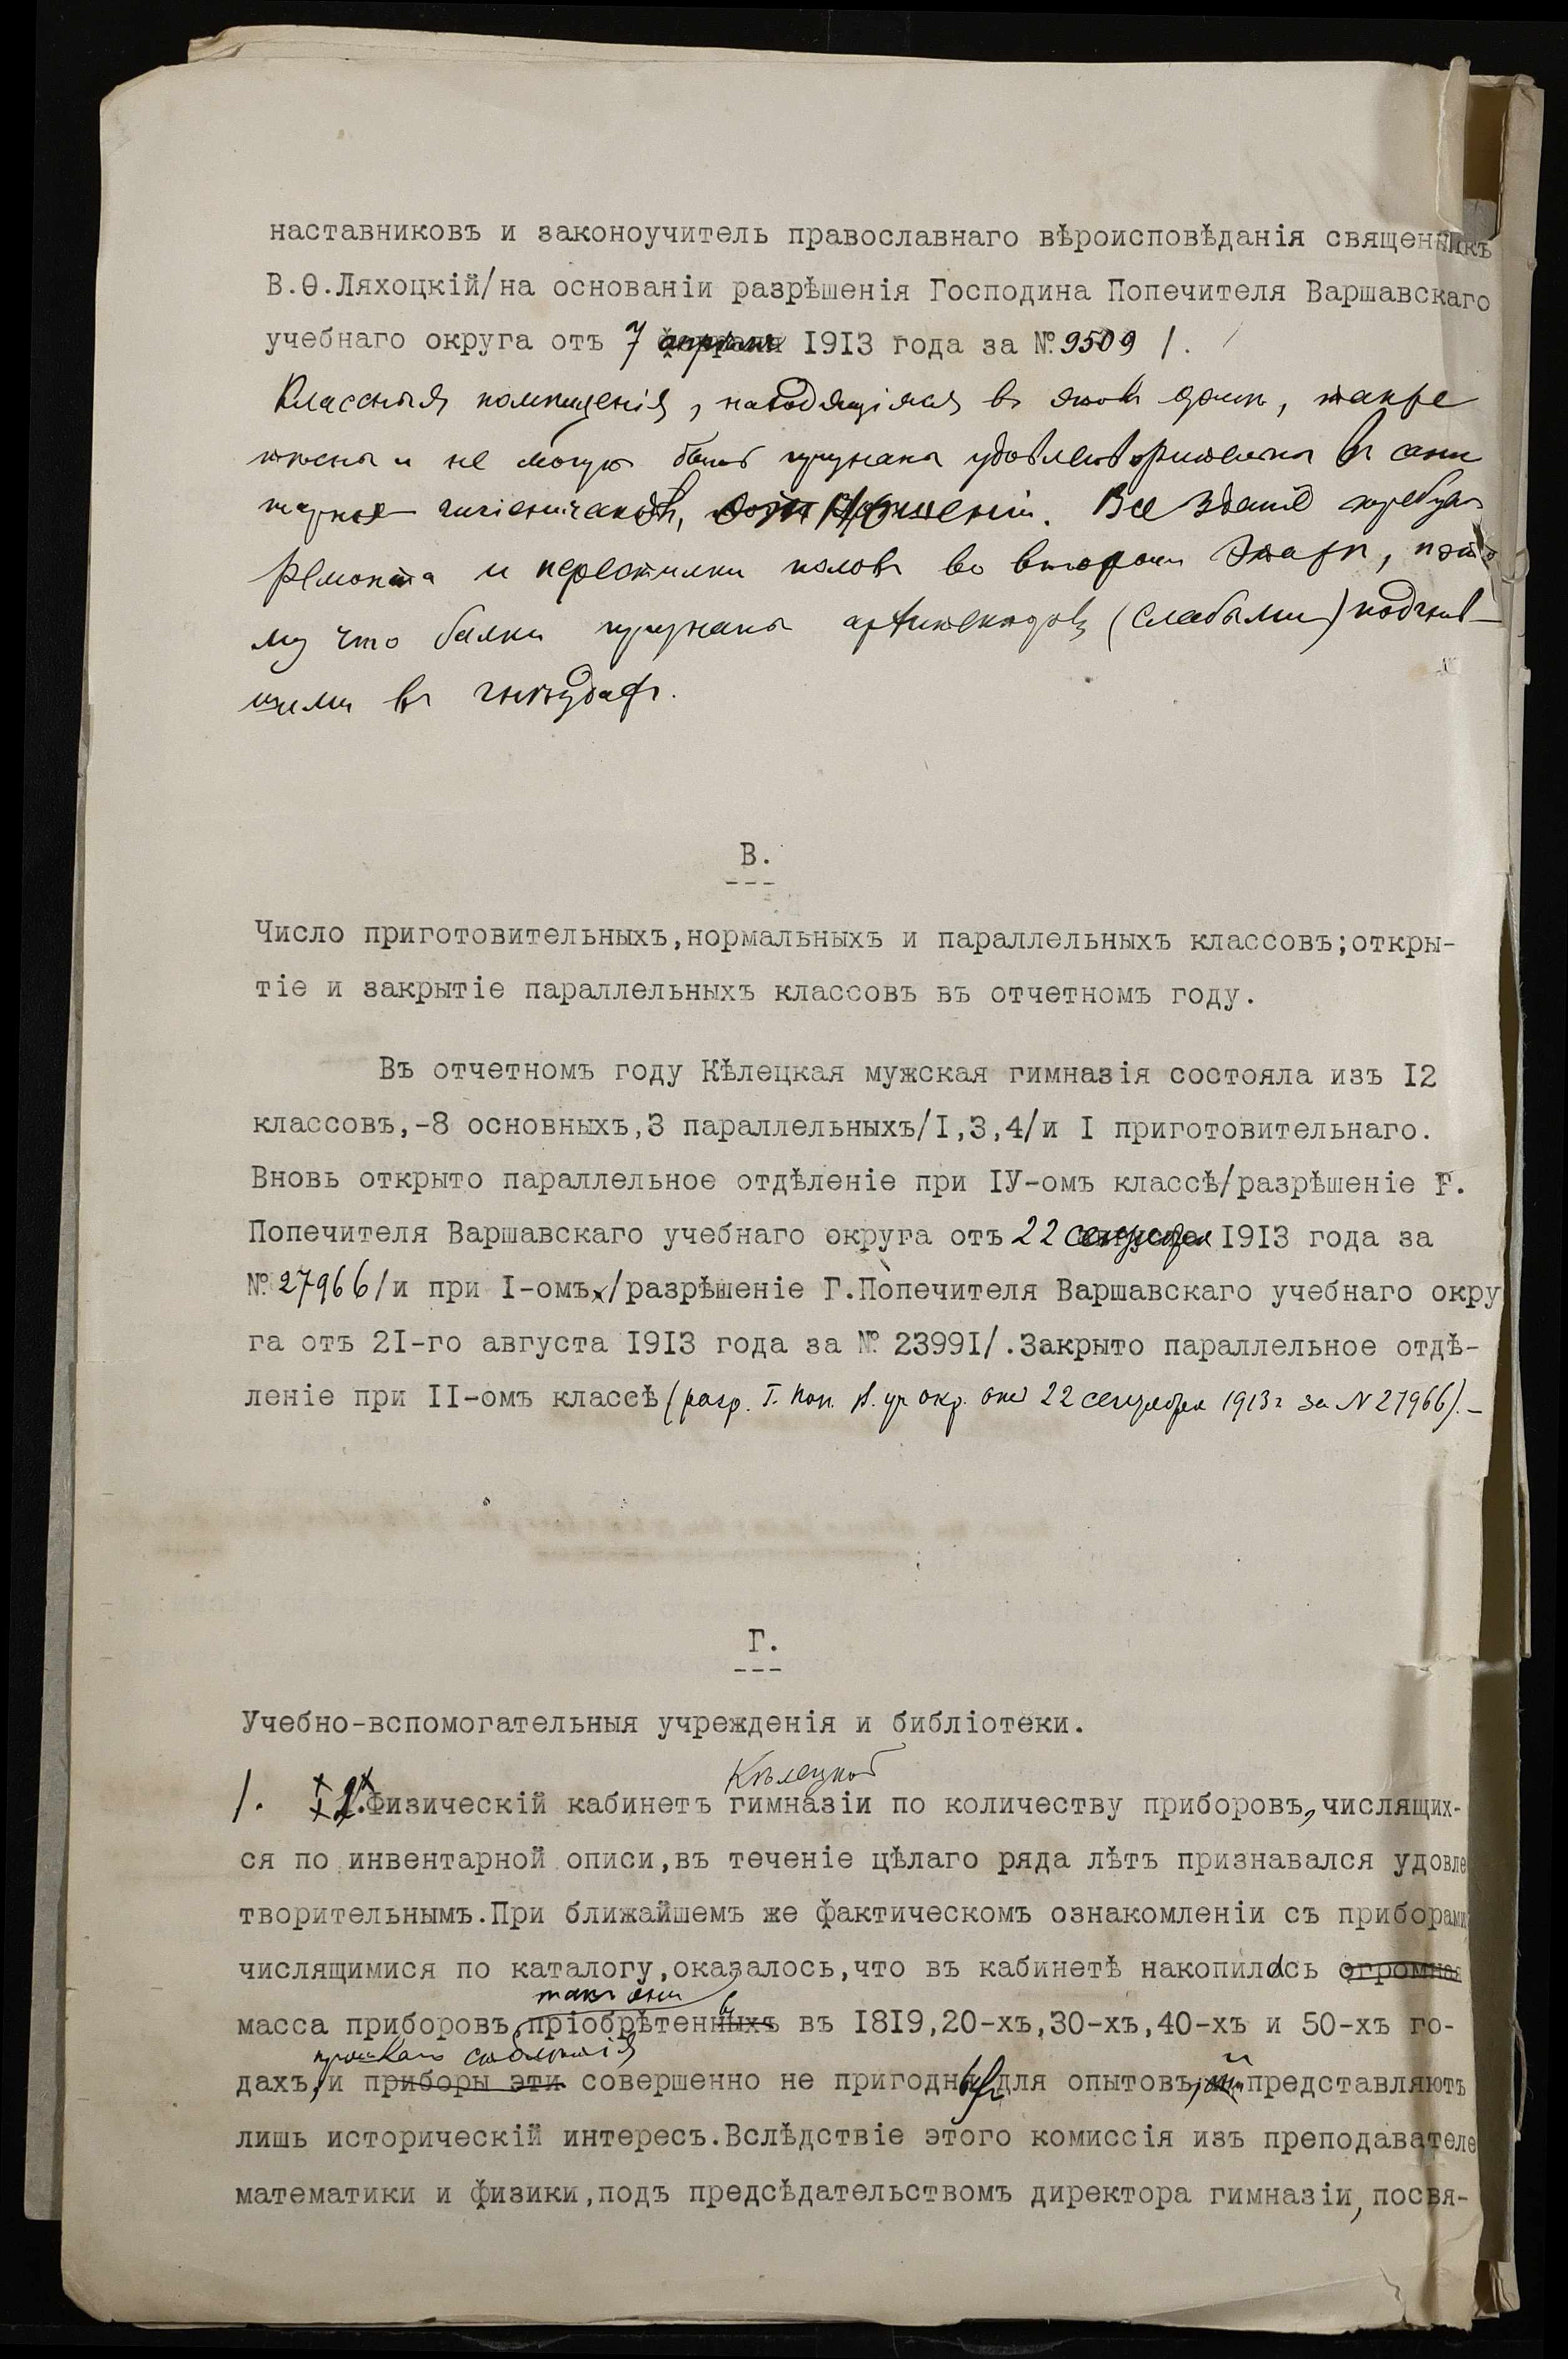 наставниковъ и законоучитель православнаго вѣроисповѣданія священникъ
В.Ѳ.Ляхоцкій/на основаніи разрѣшенія Господина Попечителя Варшавскаго
учебнаго округа отъ 7 апрѣля 1913 года за №.9509 /.
Классныя помѣщенія, находящіяся въ этомъ домѣ, также
тѣсны и не могутъ быть признаны удовлетворительными въ сани
тарно гигіеническомъ отношеніи. Все зданіе требуетъ
ремонта и перестилки половъ во второмъ этажѣ, пото
му что балки признаны архитекторомъ (слабыми) подгнив-
шими въ гнѣздахъ.
В.
Число приготовительныхъ,нормальныхъ и параллельныхъ классовъ;откры-
тіе и закрытіе параллельныхъ классовъ въ отчетномъ году.
Въ отчетномъ году Кѣлецкая мужская гимназія состояла изъ I2
классовъ,-8 основныхъ,3 параллельныхъ/I,3,4/и I приготовительнаго.
Вновь открыто параллельное отдѣленіе при IУ-омъ классѣ/разрѣшеніе Г.
Попечителя Варшавскаго учебнаго округа отъ 22 сентября 1913 года за
№.27966/и при I-омъ/разрѣшеніе Г.Попечителя Варшавскаго учебнаго окру
га отъ 2I-го августа I9I3 года за №.2399I/.Закрыто параллельное отдѣ-
леніе при II-омъ классѣ (разр. Г. Поп. В. уч. окр. отъ 22 сентября 1913 г за N 27966).-
Г.
Учебно-вспомогательныя учрежденія и библіотеки.
Кѣлецкой
1. I.Физическій кабинетъ гимназіи по количеству приборовъ, числящих-
ся по инвентарной описи,въ теченіе цѣлаго ряда лѣтъ признавался удовле
творительнымъ.При ближайшемъ же фактическомъ ознакомленіи съ приборами
числящимися по каталогу,оказалось,что въ кабинетѣ накопилась огромная
масса приборовъ,пріобрѣтенныхъ въ I8I9,20-хъ,30-хъ,40-хъ и 50-хъ го-
прошлаго столѣтія
дахъ,и приборы эти совершенно не пригодны для опытовъ, и представляютъ
лишь историческій интересъ.Вслѣдствіе этого комиссія изъ преподавателе
математики и физики,подъ предсѣдательствомъ директора гимназіи, посвя-